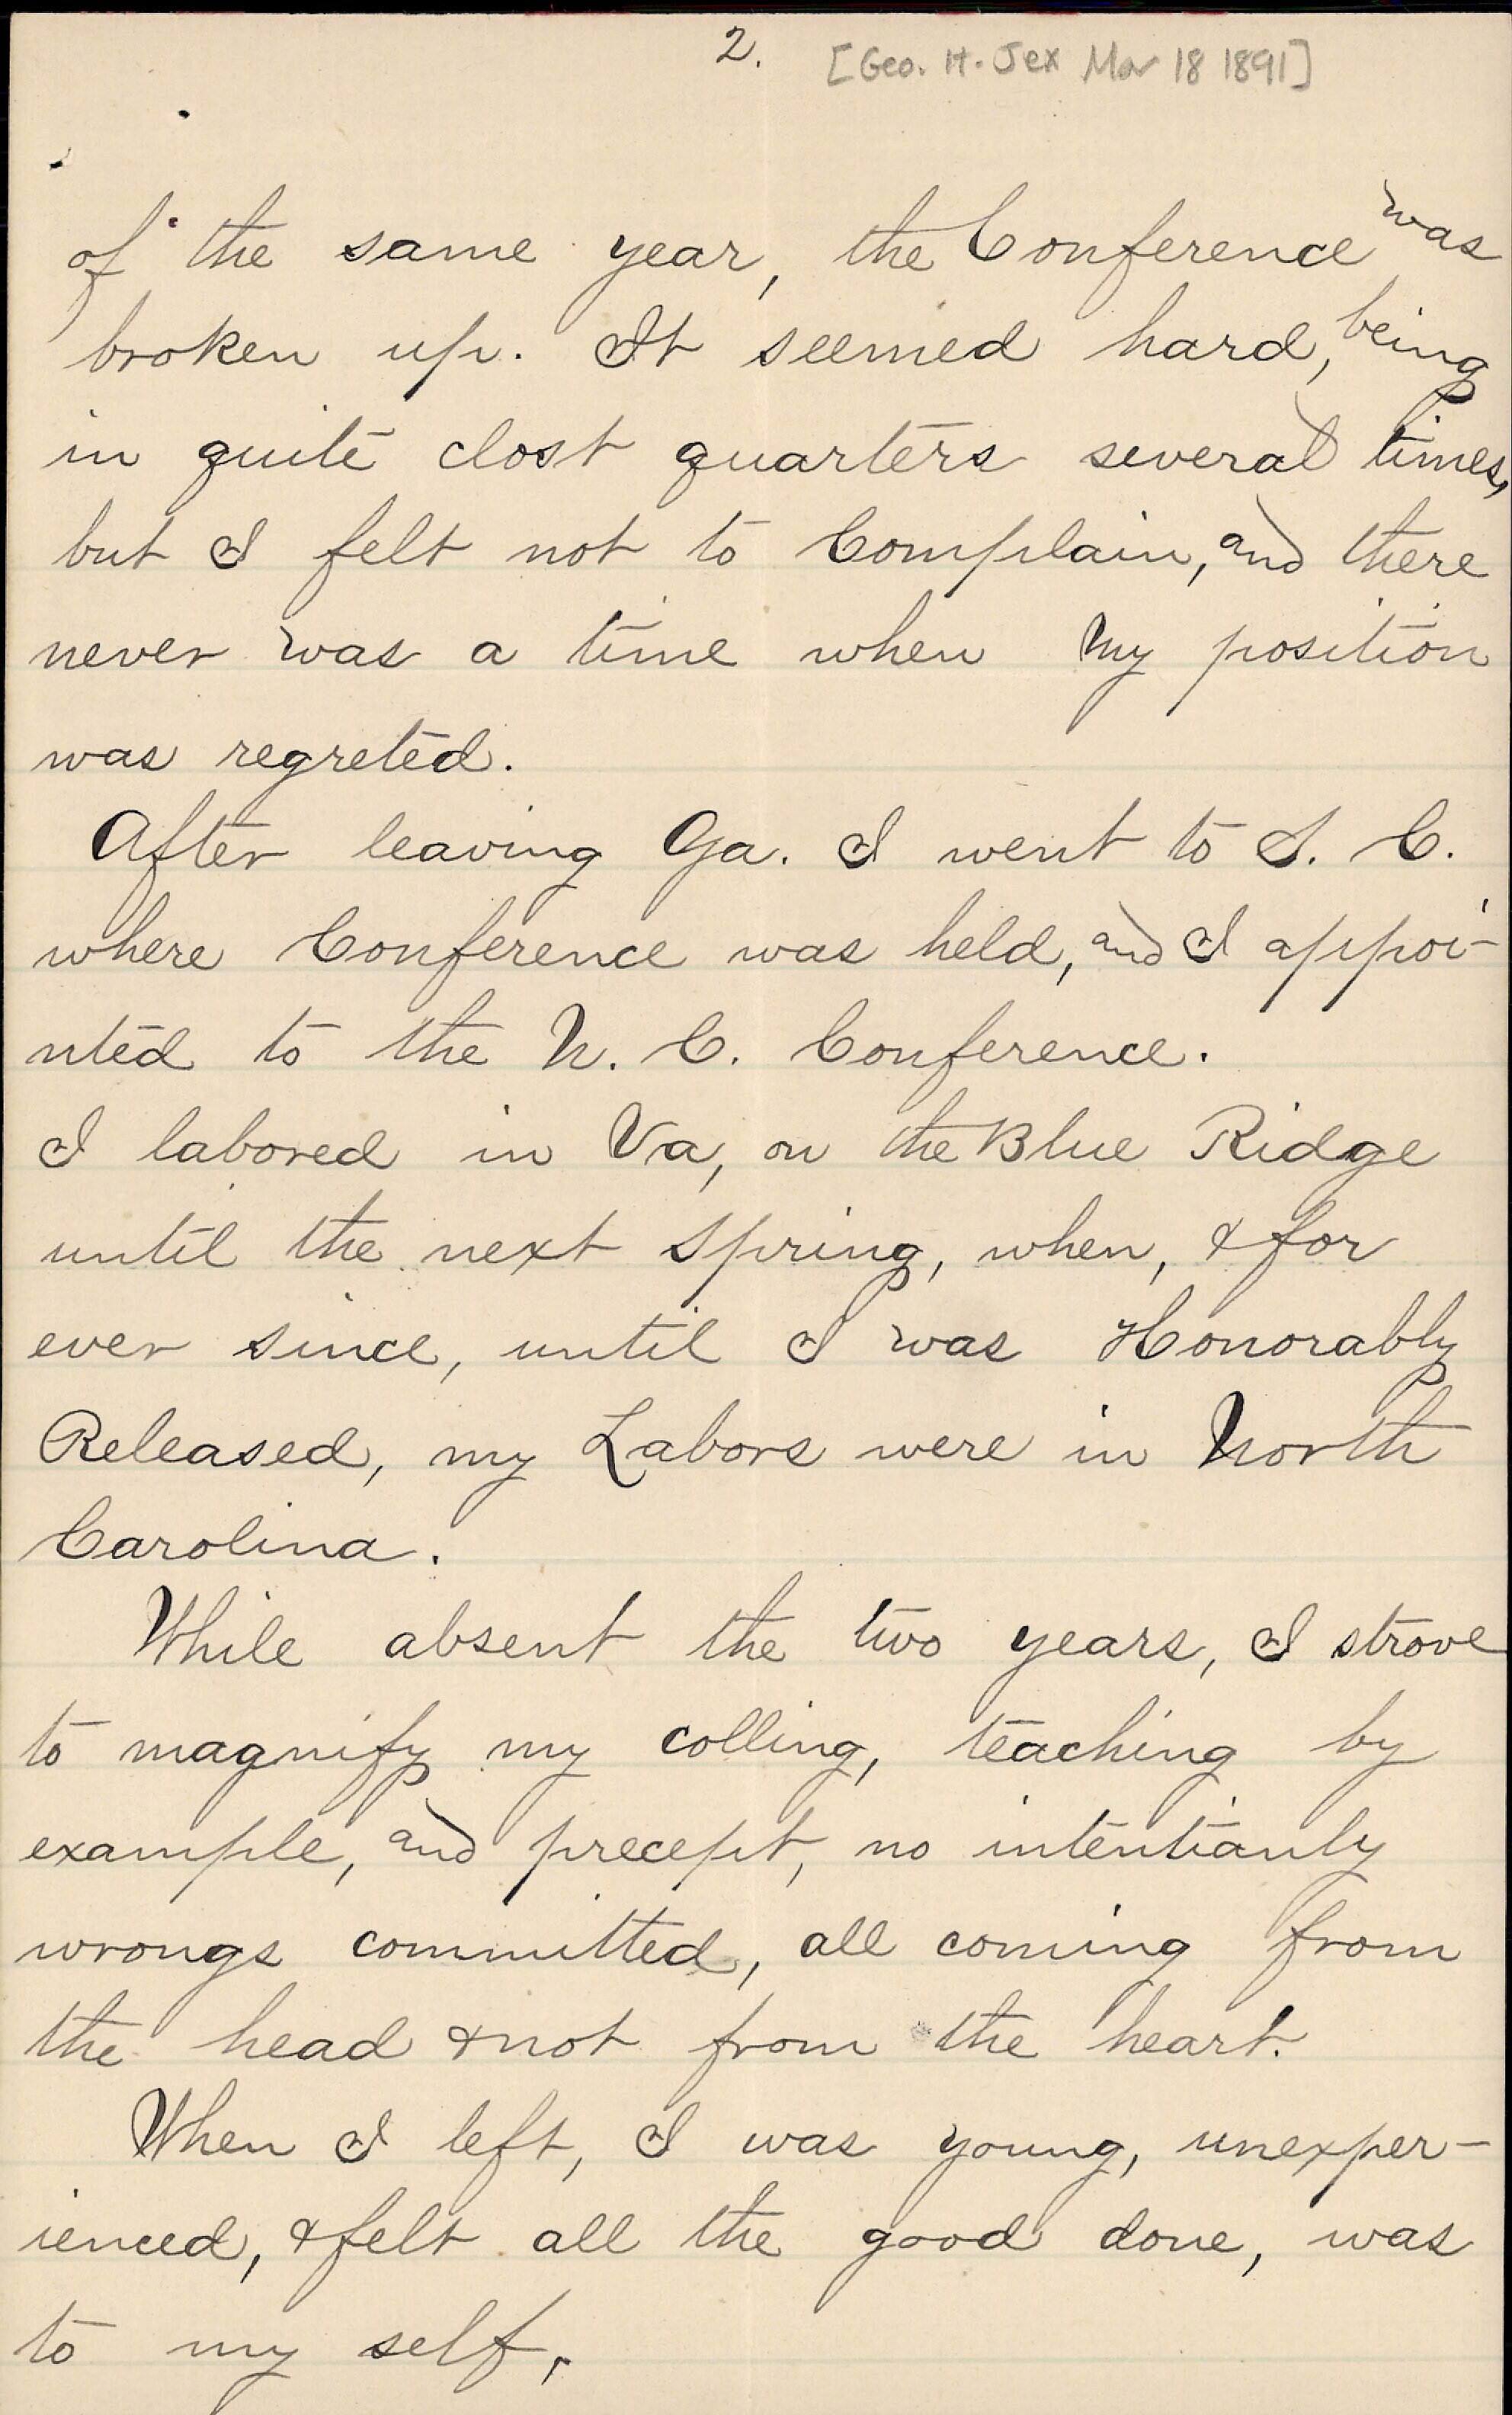 2. [Geo. H. Jex Mar 18 1891]
of the same year, the Conference was
broken up. It seemed hard, being
in quite clost quarters several times,
but I felt not to Complain, and there
never was a time when My position
was regreted.
After leaving Ga. I went to S. C.
where Conference was held, and I appoi-
nted to the N. C. Conference.
I labored in Va, on the Blue Ridge
until the next Spring, when, & for
ever since, until I was Honorably
Released, my Labors were in North
Carolina.
While absent the two years, I strove
to magnify my colling, teaching by
example, and precept, no intentianly
wrongs committed, all coming from
the head & not from the heart.
When I left, I was young, unexper-
ienced, & felt all the good done, was
to my self,